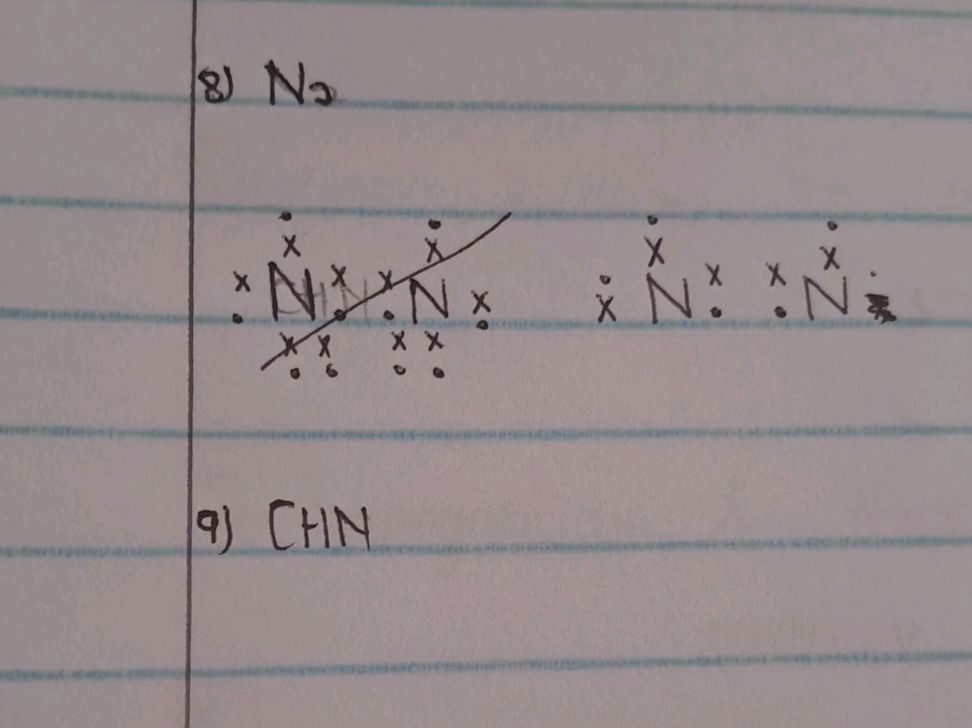 8) N₂
N N N N
9) CHN